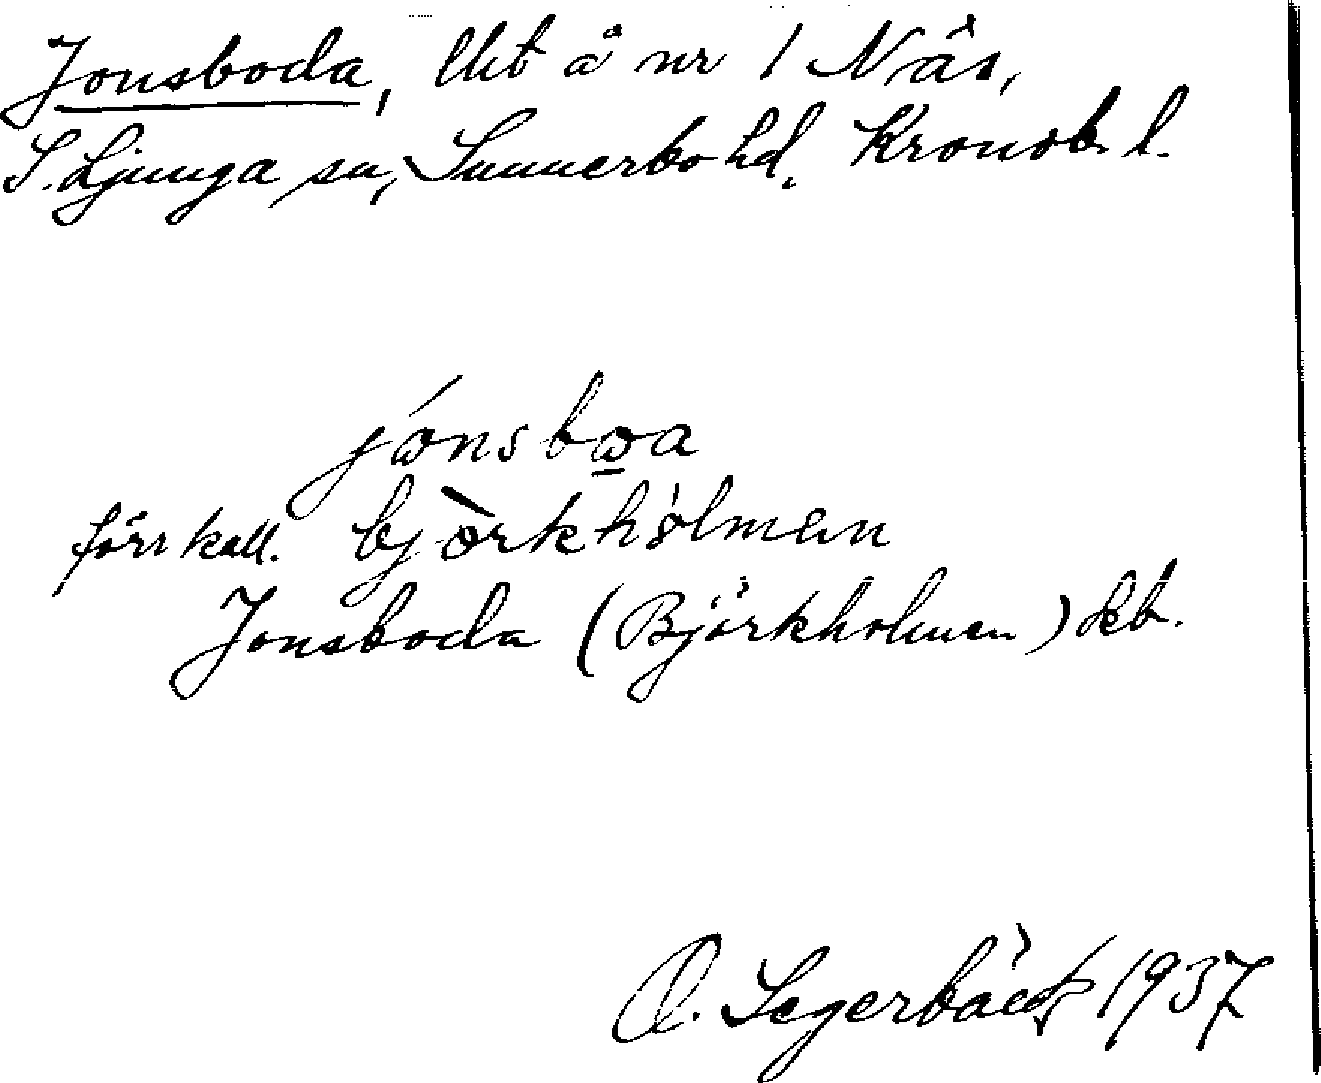 Jonsboda, lht å nr 1 Näs,
S. Ljunga sn, Sunnerbo hd. Kronob. l.
jónsbωa
förr kall. bjòrkhólmen
Jonsboda (Björkholmen) kb.
O. Segerbäck 1937